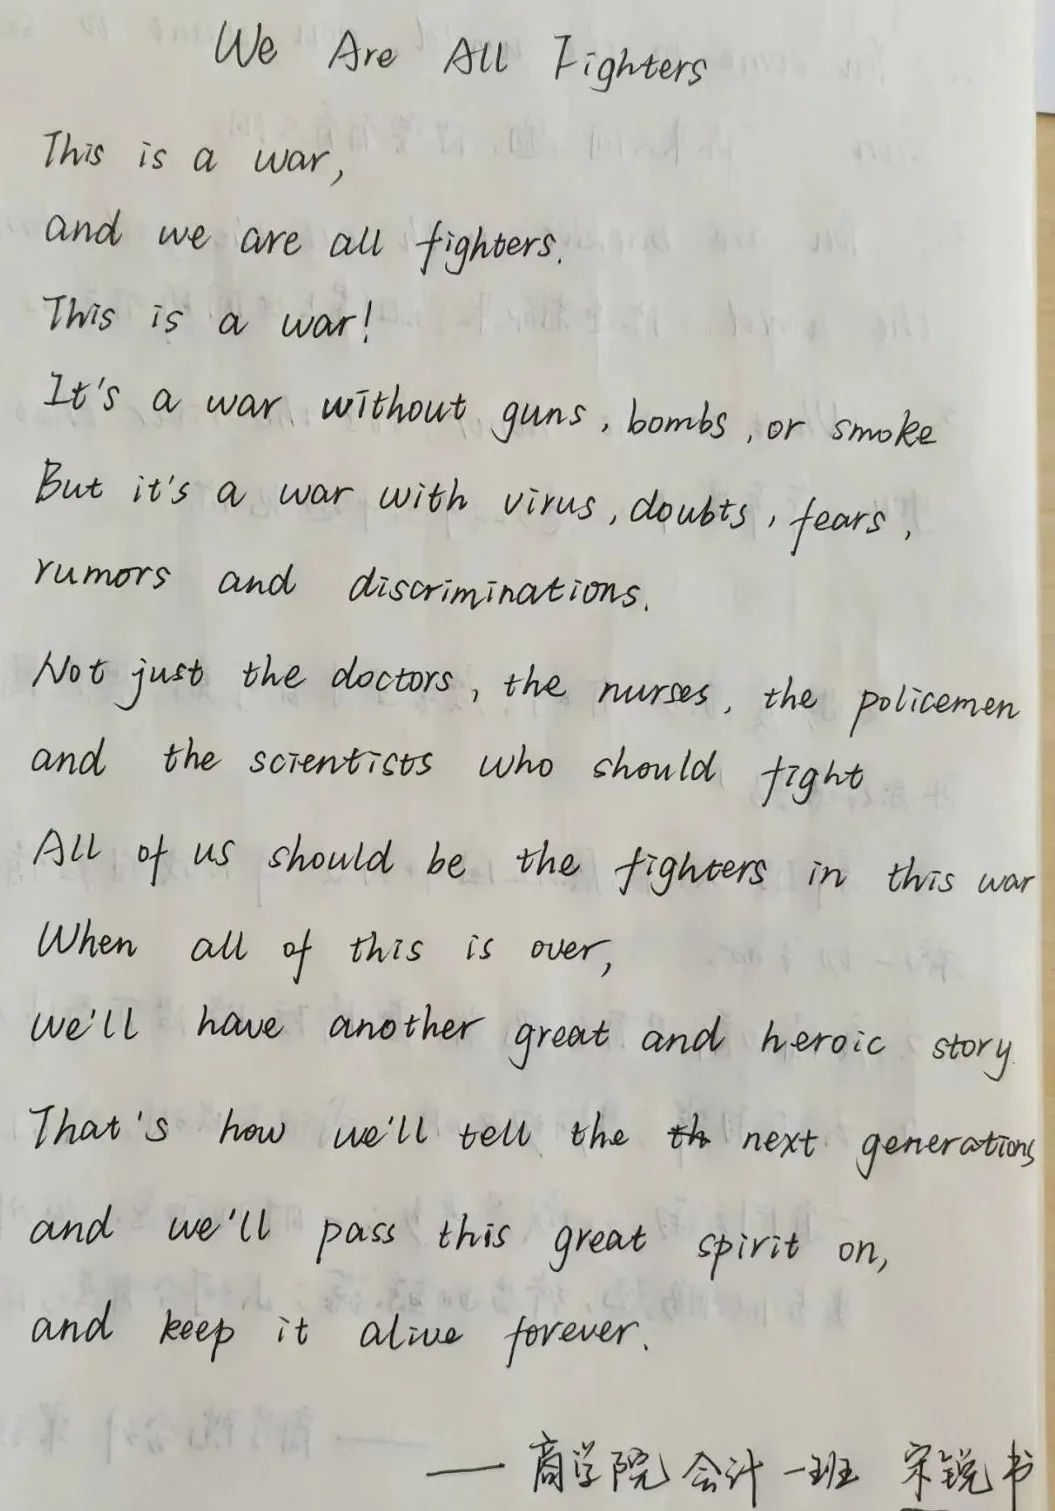 We Are All Fighters
This is a war,
and we are all fighters.
This is a war!
It's a war without guns, bombs, or smoke
But it's a war with virus, doubts, fears,
rumors and discriminations.
Not just the doctors, the nurses, the policemen
and the scientists who should fight
All of us should be the fighters in this war
When all of this is over,
we'll have another great and heroic story
That's how we'll tell the th next generations
and we'll pass this great spirit on,
and keep it alive forever.
—— 商学院 会计一班 宋锐书